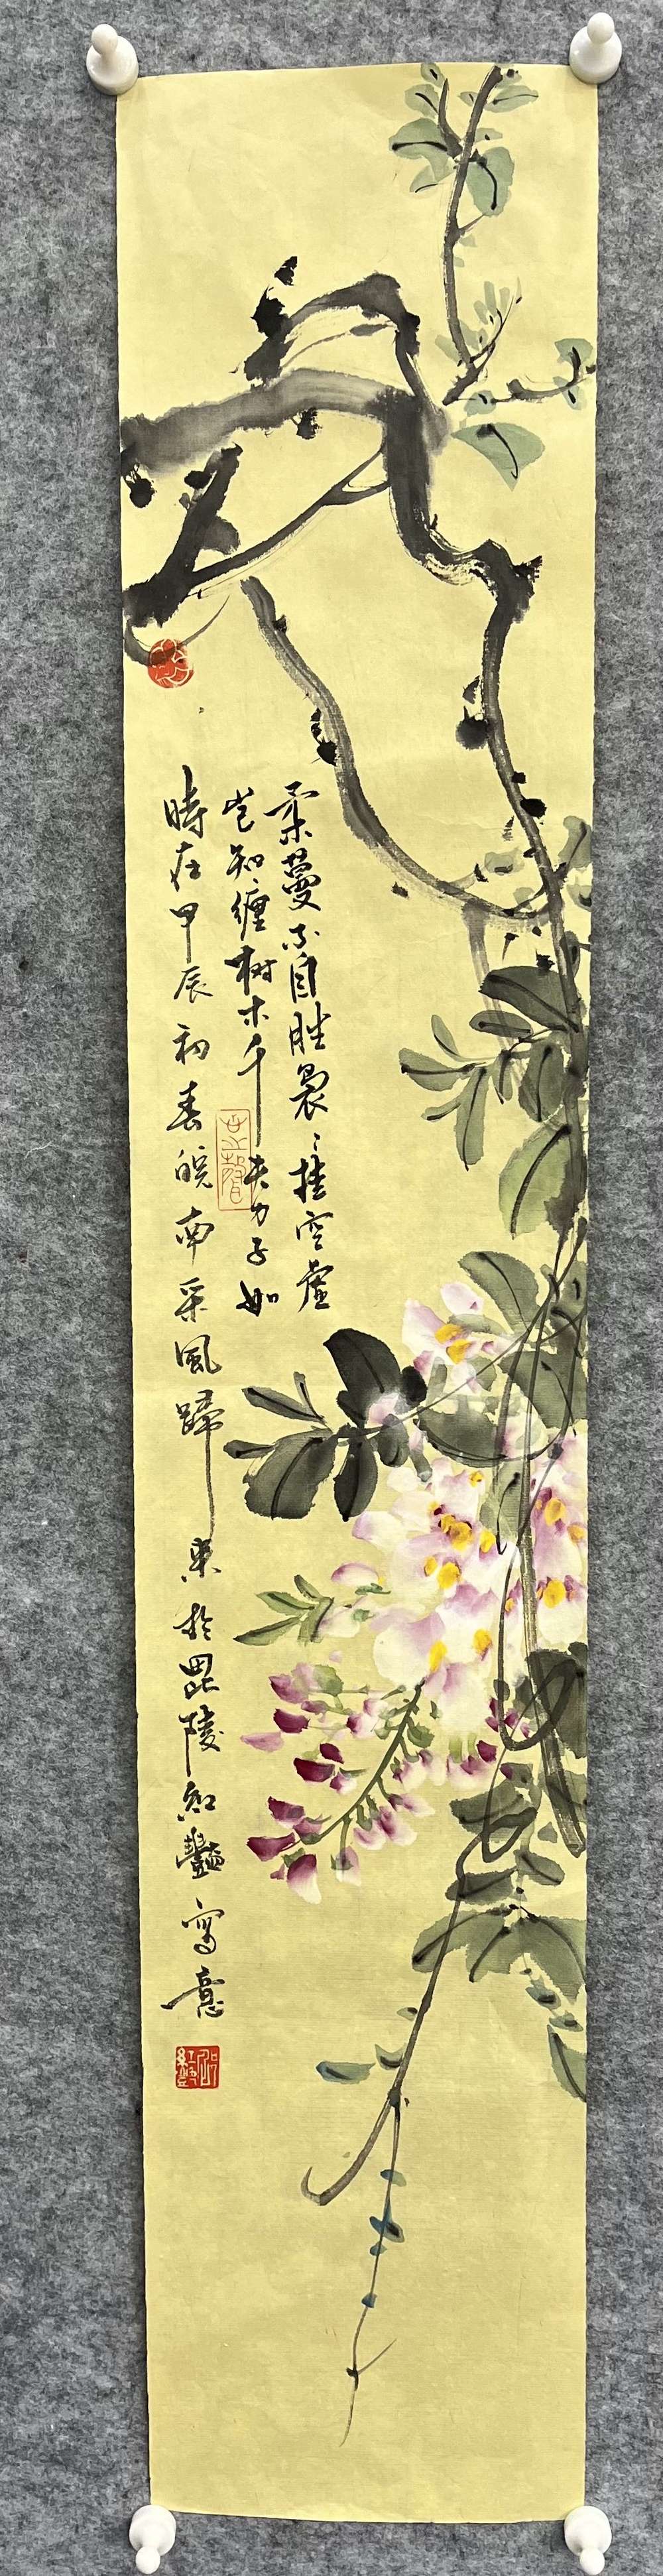 柔蔓不自胜袅〻挂空虚
岂知缠树木千夫力不如
時在甲辰初春皖南采風歸
来於毗陵红豔寫意